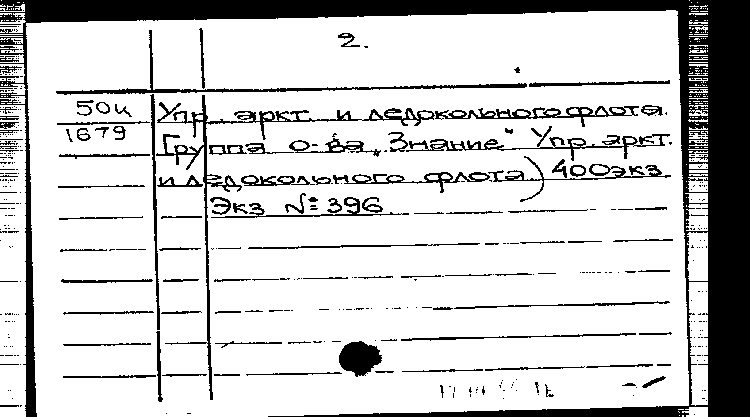 2.
50к Упр. аркт. и ледокольного флота.
1679 Группа о-ва „Знание" Упр. аркт.
и ледокольного флота.) 400экз
Экз №396